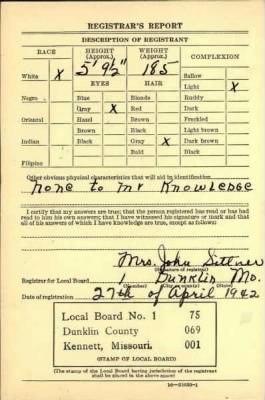 REGISTRAR'S REPORT
DESCRIPTION OF REGISTRANT
RACE HEIGHT (Approx.) WEIGHT (Approx.) COMPLEXION
5' 9½" 185
White X Sallow
EYES HAIR Light X
Negro Blue Blonde Ruddy
Gray X Red Dark
Oriental Hazel Brown Freckled
Brown Black Light brown
Indian Black Gray X Dark brown
Bald Black
Filipino
Other obvious physical characteristics that will aid in identification
None to my Knowledge
I certify that my answers are true; that the person registered has read or has had
read to him his own answers; that I have witnessed his signature or mark and that
all of his answers of which I have knowledge are true, except as follows:
Mrs. John
(Signature of registrar)
Registrar for Local Board 1 Dunklin Mo.
(Number) (City or county) (State)
Date of registration 27th of April 1942
Local Board No. 1 75
Dunklin County 069
Kennett, Missouri. 001
(STAMP OF LOCAL BOARD)
(The stamp of the Local Board having jurisdiction of the registrant
shall be placed in the above space)